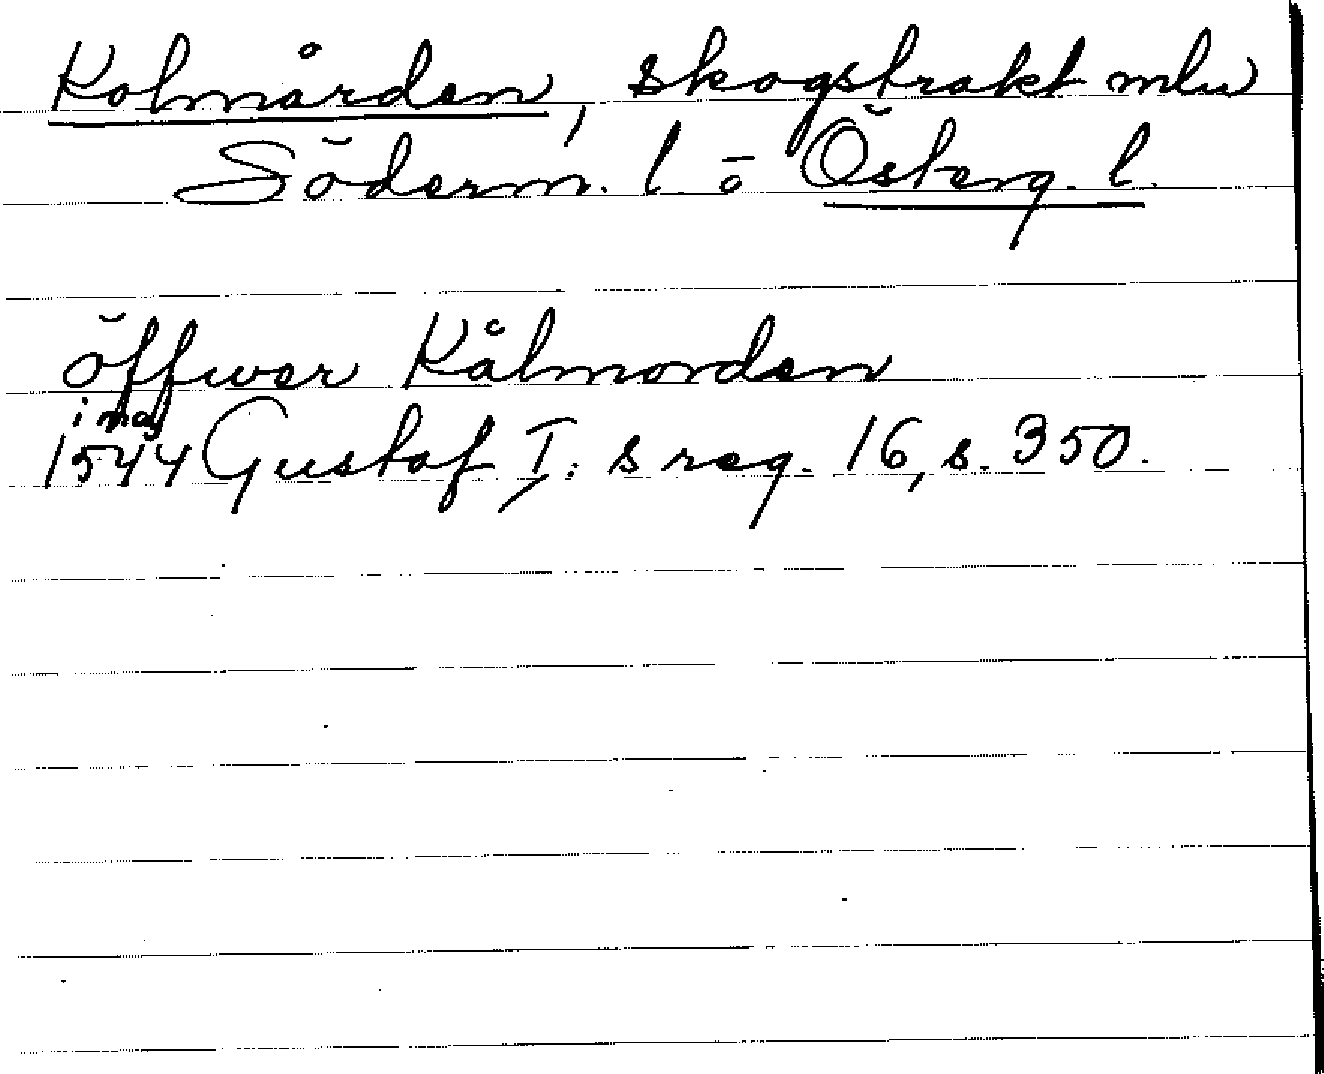 Kolmården, skogstrakt mlu
Söderm. l. o Österg. l.
öffwer Kålmorden
i maj
1544 Gustaf I:s reg. 16, s. 350.